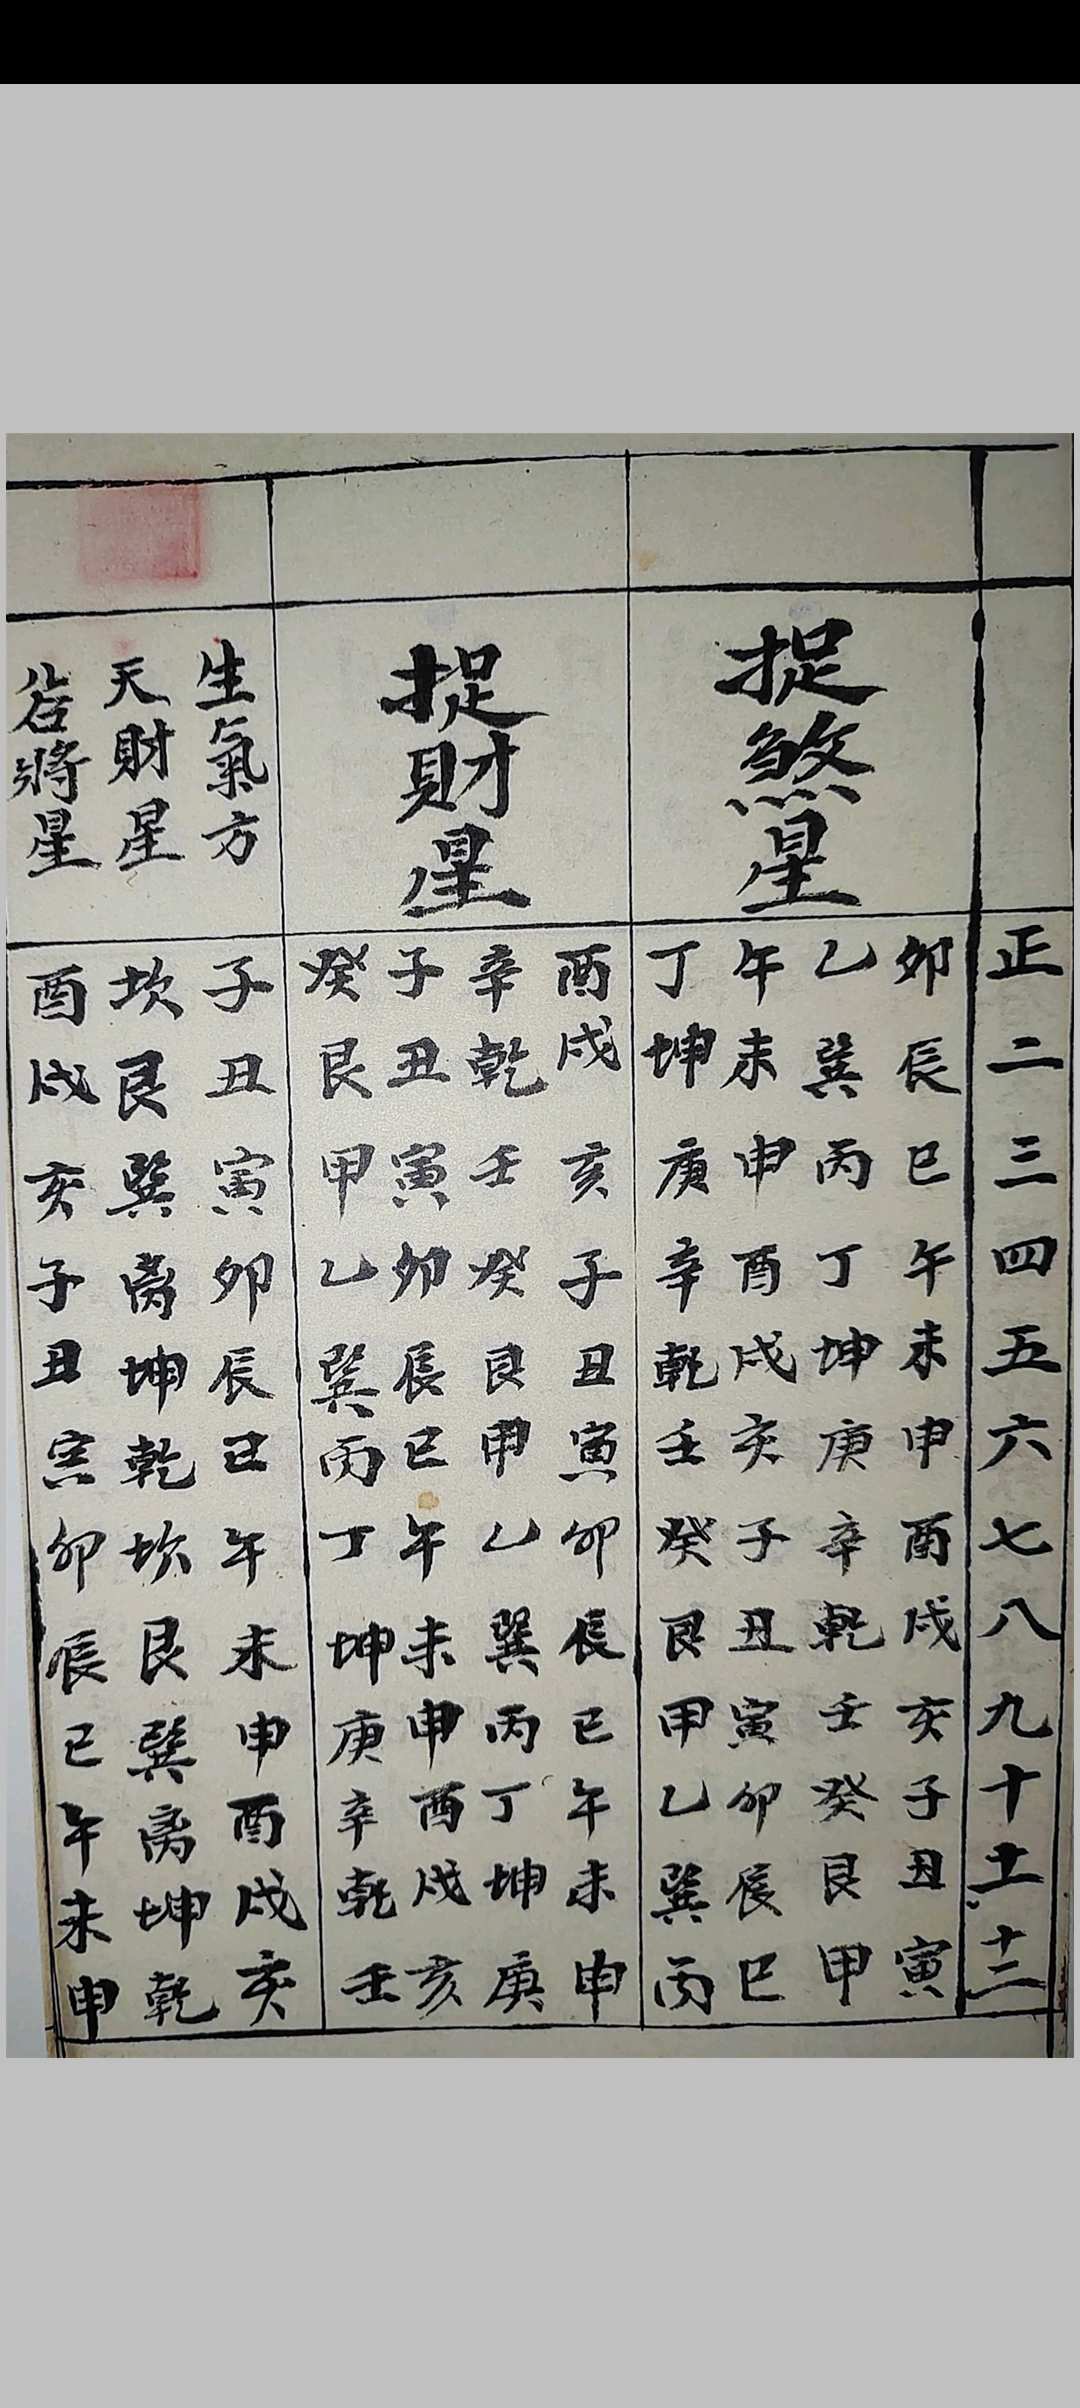 正二三四五六七八九十十一十二
捉煞星
卯辰巳午未申酉戌亥子丑寅
乙巽丙丁坤庚辛乾壬癸艮甲
午未申酉戌亥子丑寅卯辰巳
丁坤庚辛乾壬癸艮甲乙巽丙
捉財星
酉戌亥子丑寅卯辰巳午未申
辛乾壬癸艮甲乙巽丙丁坤庚
子丑寅卯辰巳午未申酉戌亥
癸艮甲乙巽丙丁坤庚辛乾壬
生氣方
子丑寅卯辰巳午未申酉戌亥
天財星
坎艮巽离坤乾坎艮巽离坤乾
將星
酉戌亥子丑寅卯辰巳午未申